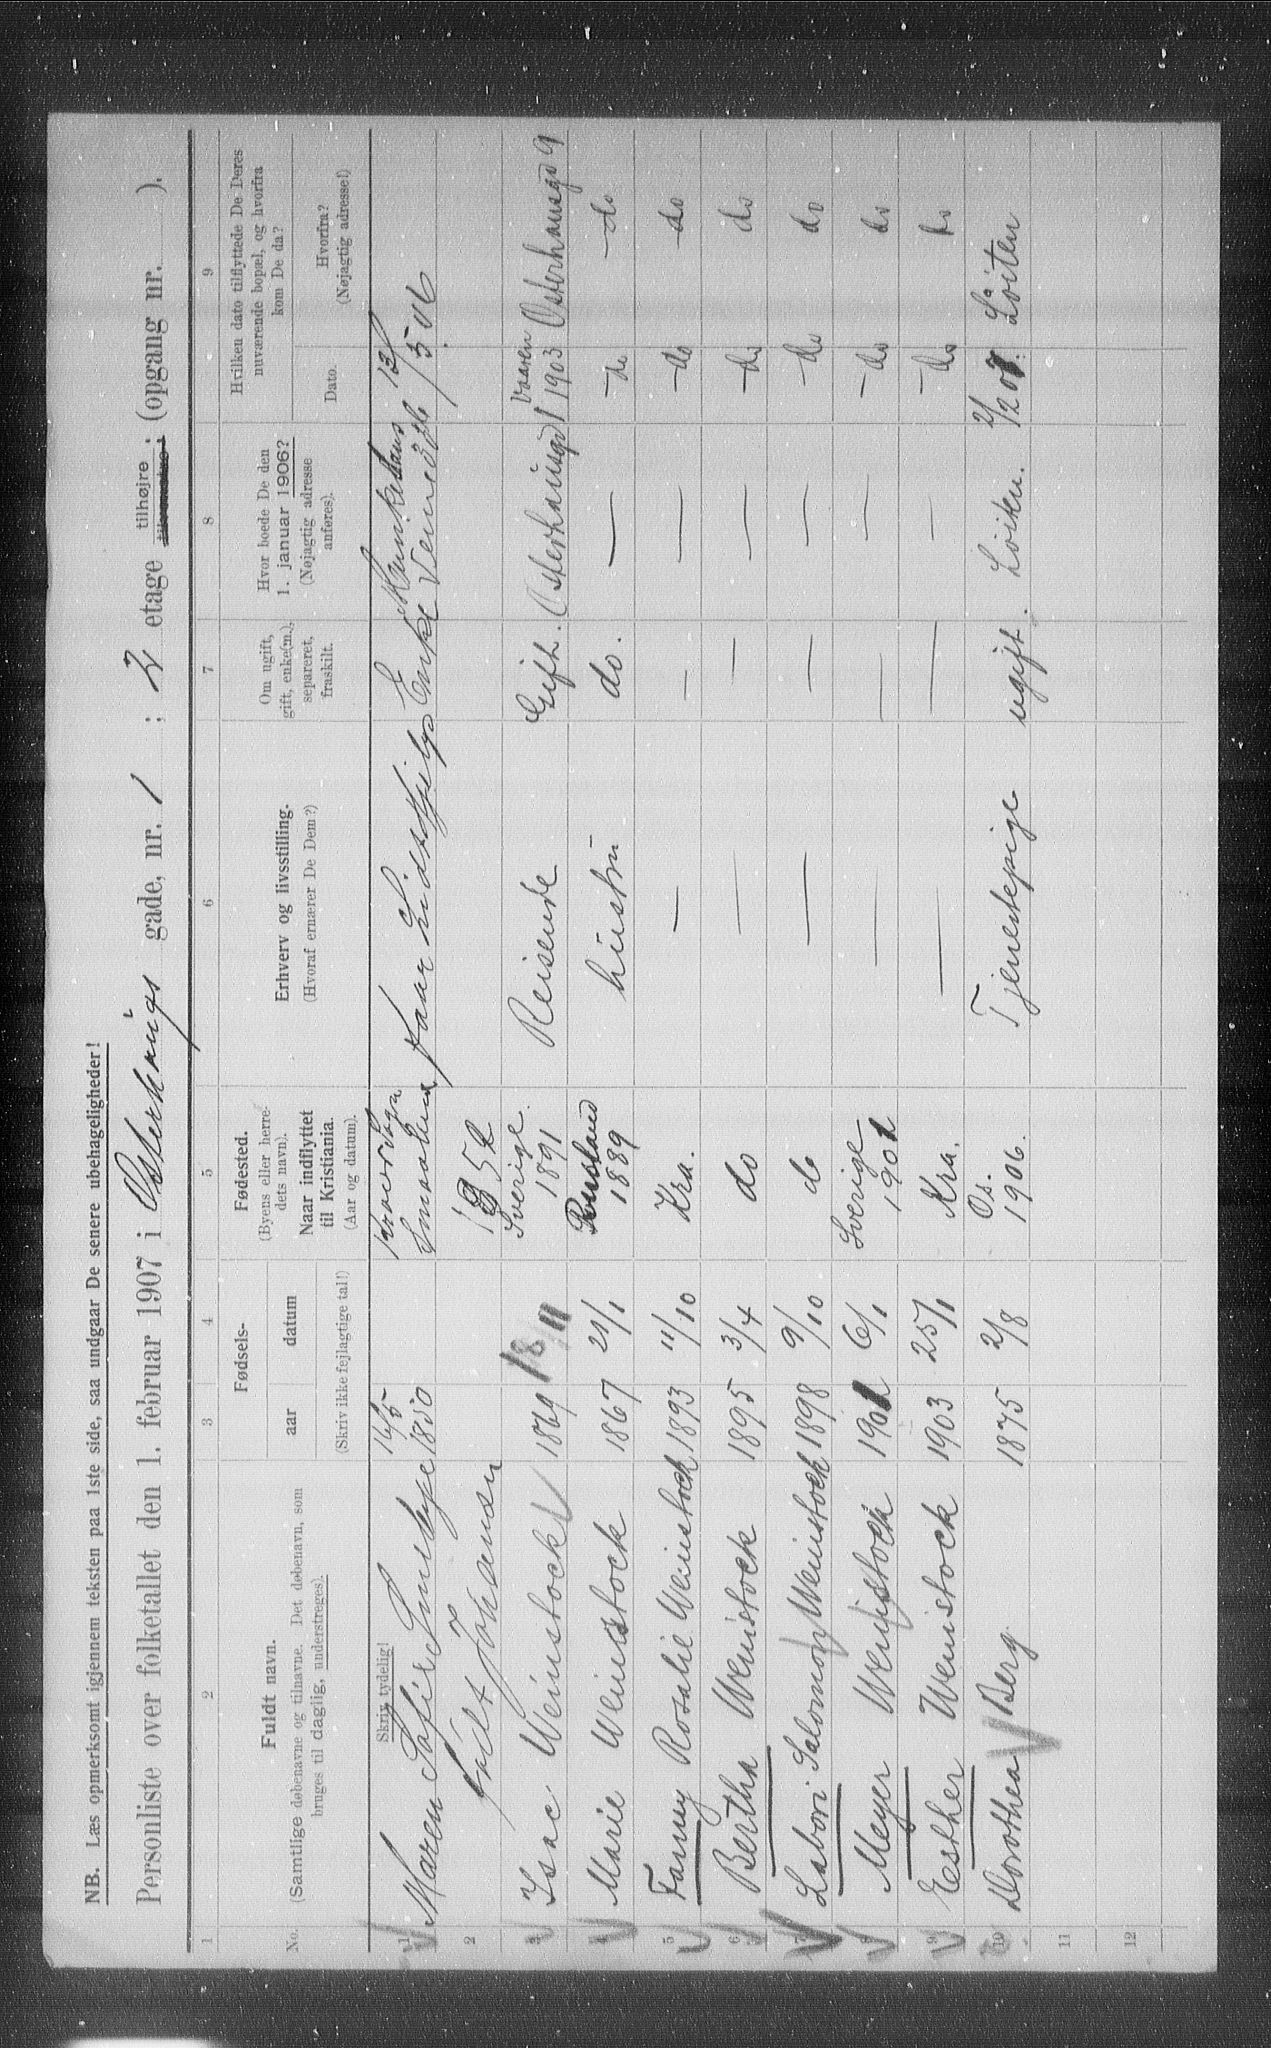 NB. Læs opmerksomt igjennem teksten paa 1ste side, saa undgaar De senere ubehageligheder!
Personliste over folketallet den 1. februar 1907 i Osterhaugs gade, nr. 1 ; 2 etage tilhøjre ; (opgang nr. ).
1 2 3 4 5 6 7 8 9
No.
Fuldt navn.
(Samtlige døbenavne og tilnavne. Det døbenavn, som
bruges til daglig, understreges).
Fødsels-
aar datum
(Skriv ikke fejlagtige tal!)
Fødested.
(Byens eller herre-
dets navn).
Naar indflyttet
til Kristiania.
(Aar og datum).
Erhverv og livsstilling.
(Hvoraf ernærer De Dem?)
Om ugift,
gift, enke(m.),
separeret,
fraskilt.
Hvor boede De den
1. januar 1906?
(Nøjagtig adresse
anføres).
Hvilken dato tilflyttede De Deres
nuværende bopæl, og hvorfra
kom De da?
Dato.
Hvorfra?
(Nøjagtig adresse!)
Skriv tydelig!
1 Maren Sofie 16/5 1850 Smaalenene Enke 12/5 06
2 født Johansen
3 Isac Weinstock 1869 18 11 Sverige. 1891 Reisende Gift. Osterhausgd 1 Vaaren 1903 Osterhausgd 9
4 Marie Weinstock 1867 21/1 Rusland 1889 hustru do. — -do -do
5 Fanny Rosalie Weinstock 1893 11/10 Kra. — — — -do -do
6 Bertha Weinstock 1895 3/4 do — — — -do do
7 Labori Salomon Weinstock 1898 9/10 do — — — -do do
8 Meyer Weinstock 1901 6/1 Sverige 1901 — — — -do do
9 Esther Weinstock 1903 25/1 Kra. — — — -do do
10 Dorothea Berg 1875 2/8 Os. 1906. Tjenestepige ugift. Löiten. 2/2 07. Löiten
11
12